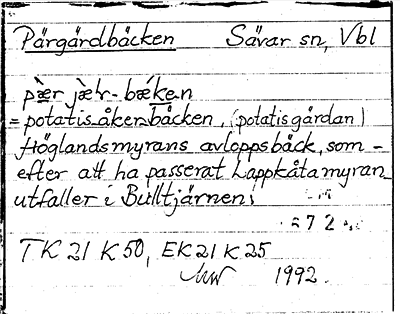 Pärgårdbäcken Sävar sn, Vbl
pæ̀r jæ̀r-bǽken
= potatisåkerbäcken, (potatisgårdan)
Höglandsmyrans avloppsbäck, som -
efter att ha passerat Lappkåtamyran
utfaller i Bulltjärnen.
672
TK 21 K 50, EK 21 K 25
1992.